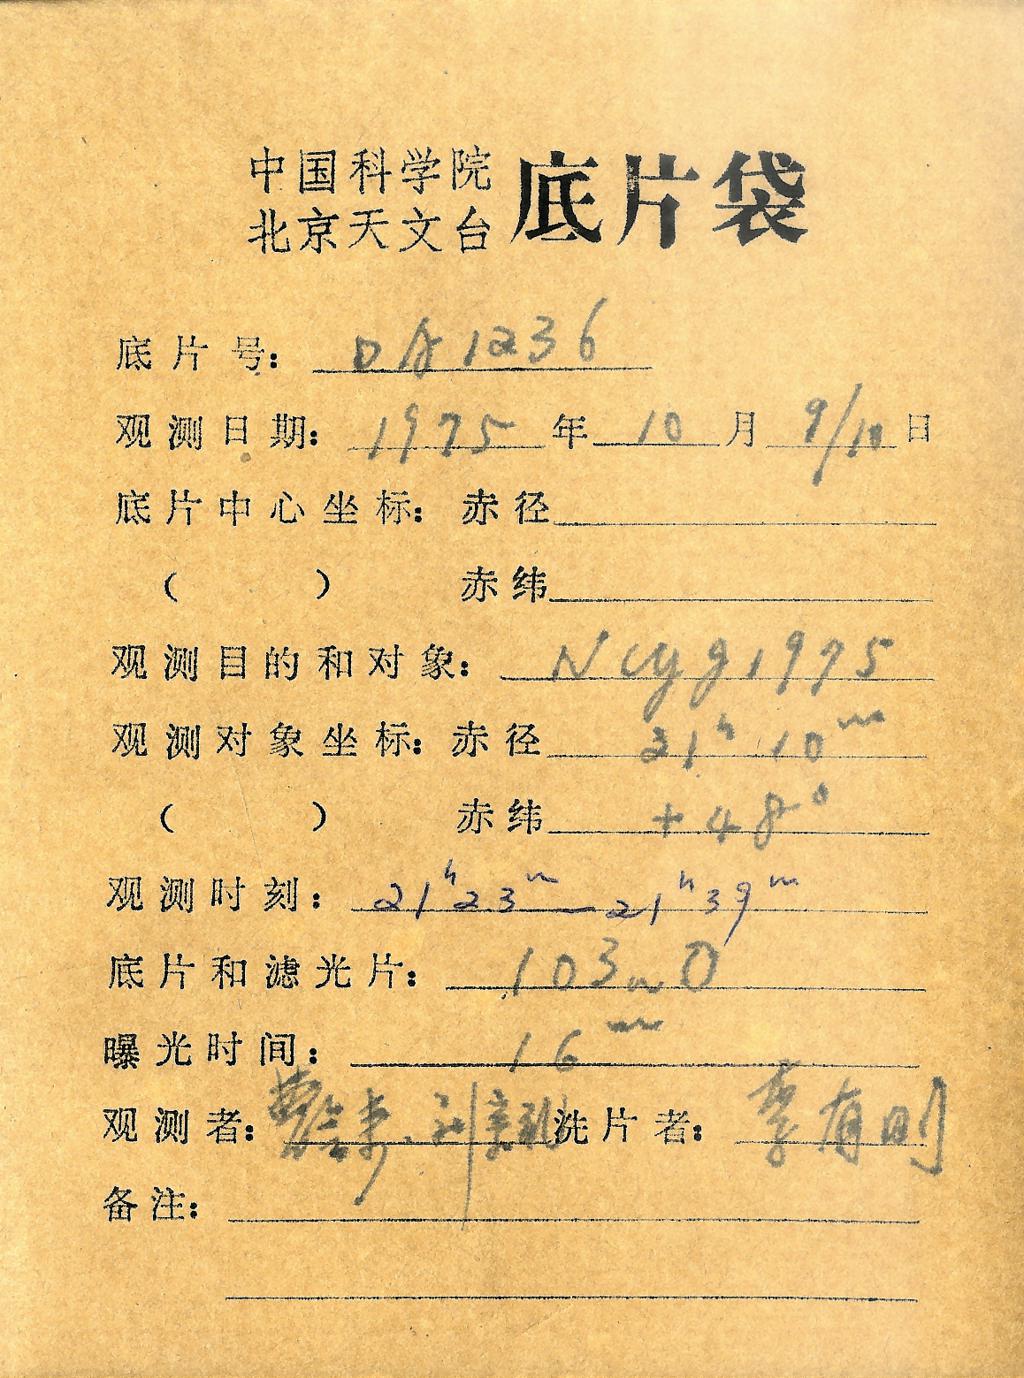 中国科学院
北京天文台 底片袋
底片号: DA1236
观测日期: 1975年10月9/10日
底片中心坐标: 赤径
( ) 赤纬
观测目的和对象: N Cyg 1975
观测对象坐标: 赤径 21h 10m
( ) 赤纬 +48°
观测时刻: 21h23m—21h39m
底片和滤光片: 103aO
曝光时间: 16m
观测者: 洗片者: 李有则
备注: